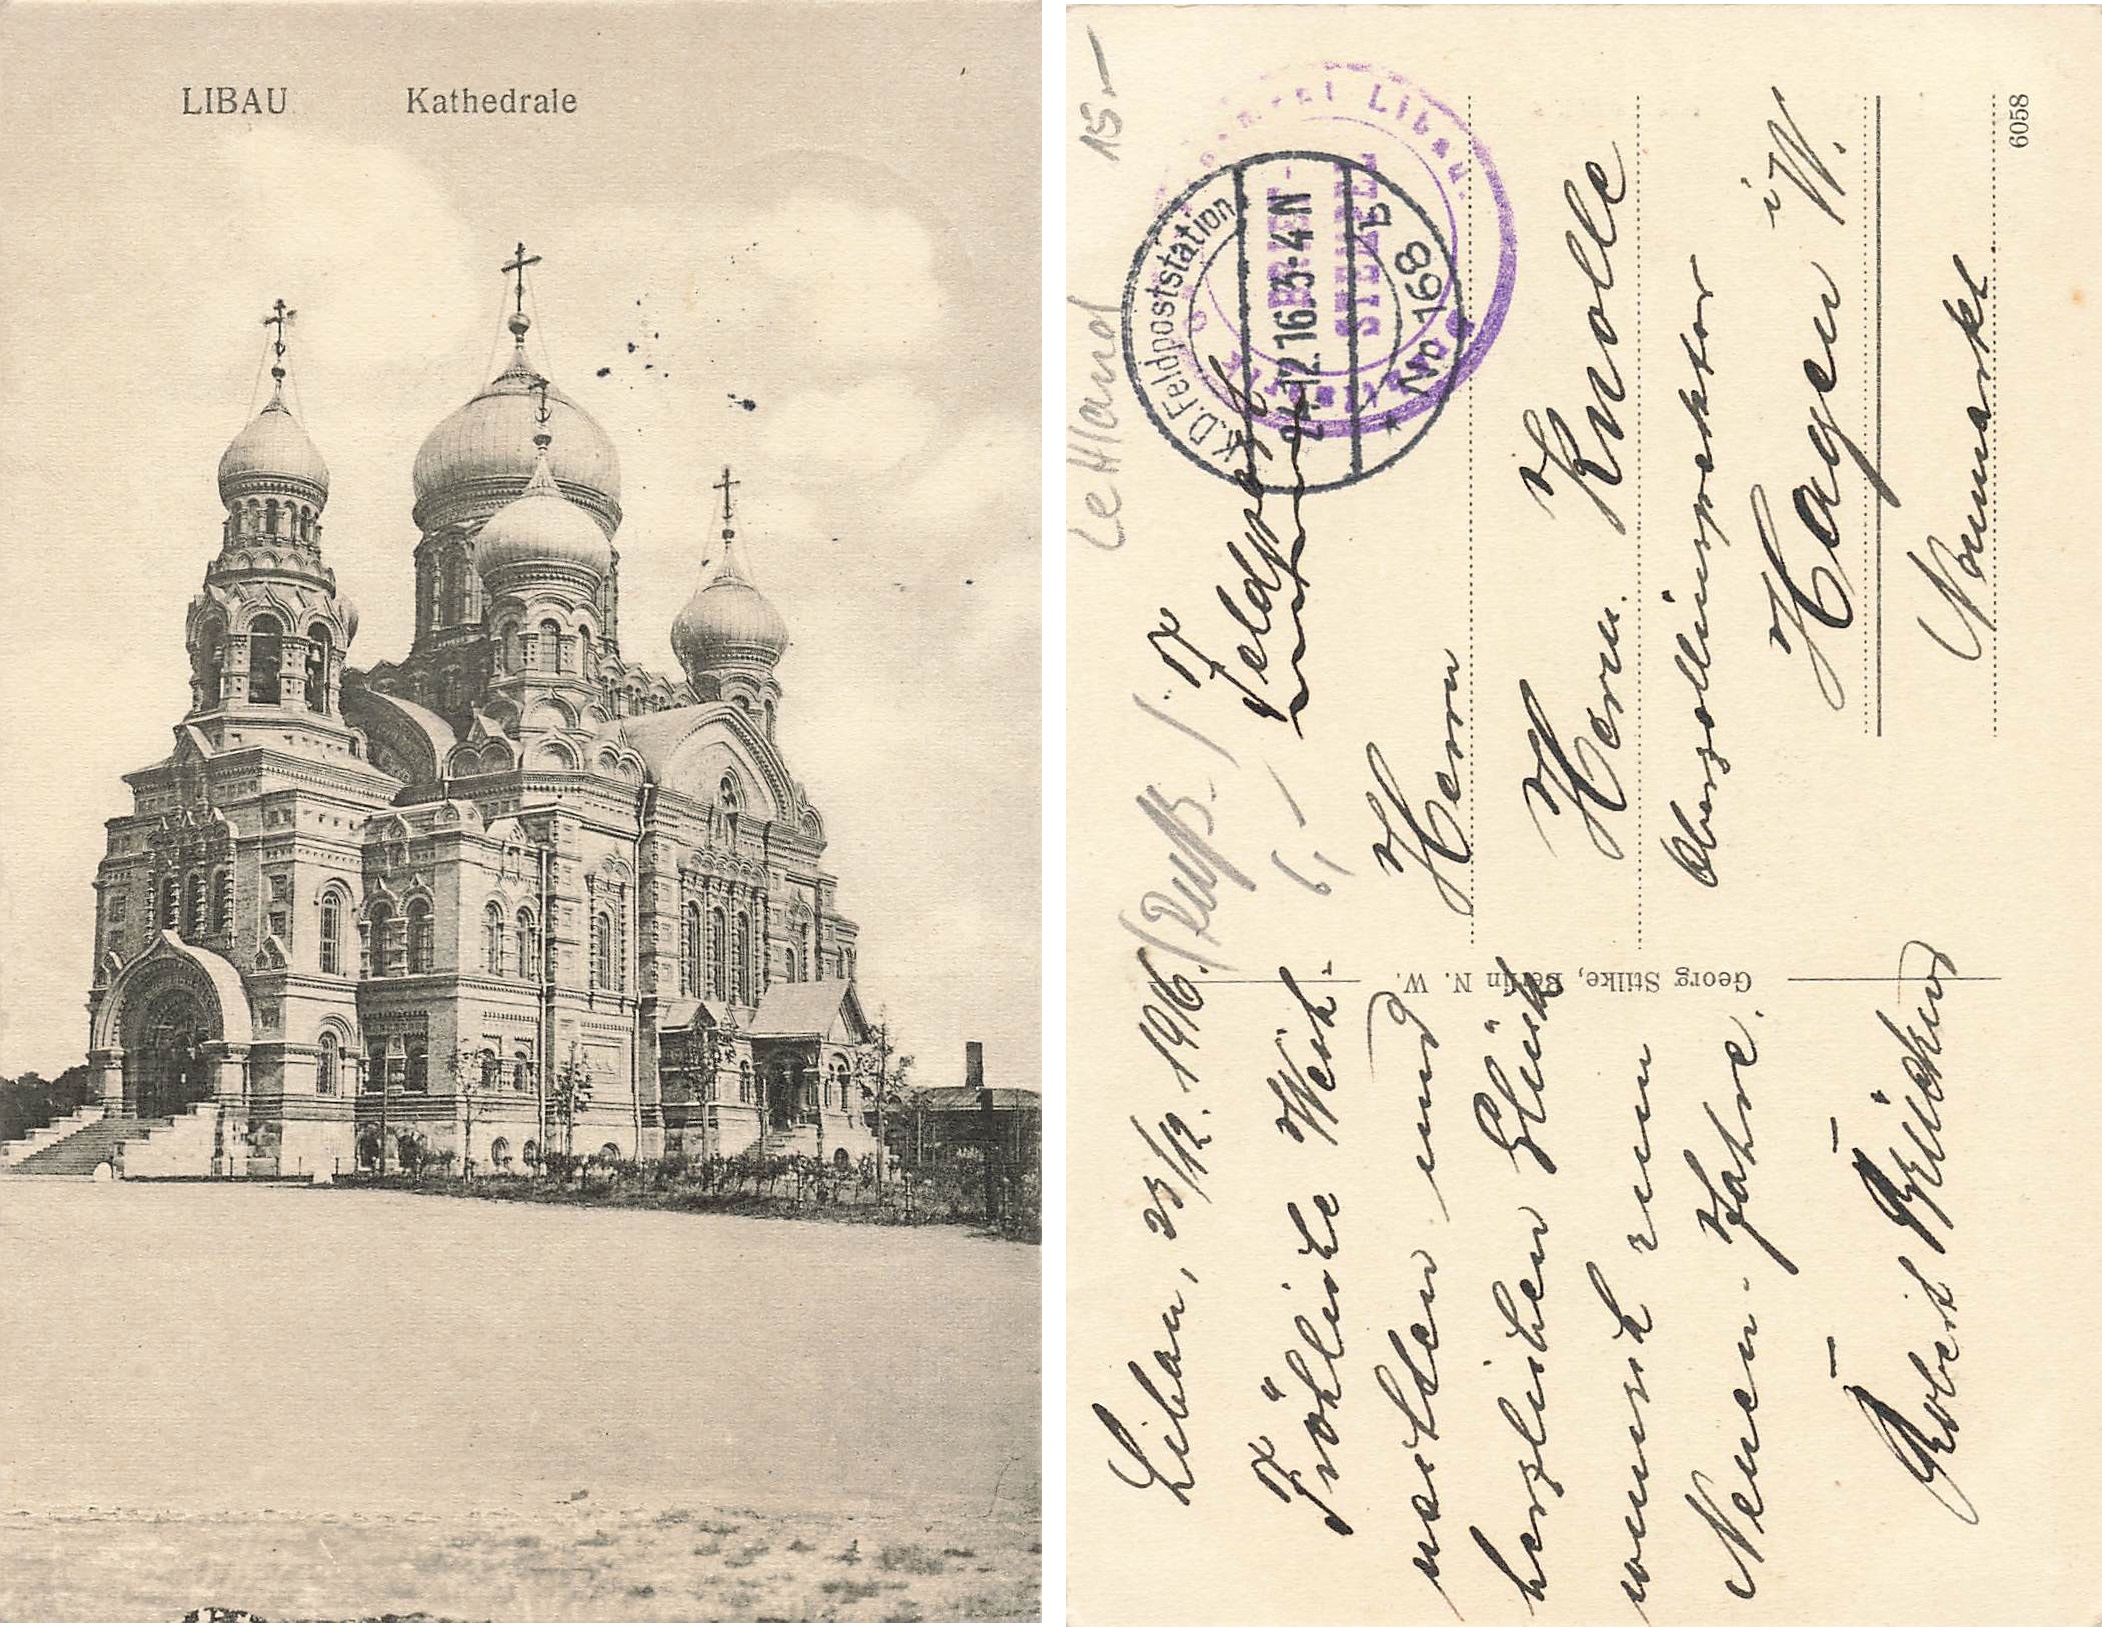 LIBAU Kathedrale
Libau, 23/12. 1916.
Fröhliche Weih-
nachten und
herzlichen Glück
wunsch zum
Neuen Jahre.
Robert Brückner
Georg Stilke, Berlin N. W.
Lettland
15.-
Feldpost
K.D. Feldpoststation
24.12.16.3-4N
No 168 b
Libau
BRIEF-
STEMPEL
Herrn
Herrn. Knolle
Oberzollinspektor
Hagen i/W.
Neumarkt
6058